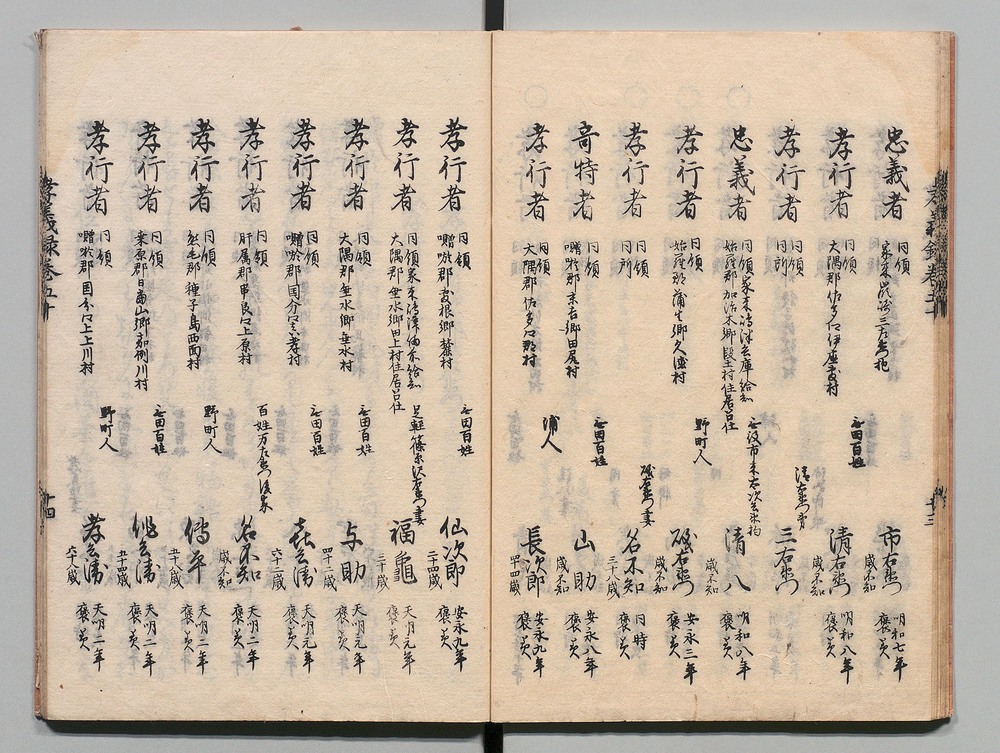 忠義者
同領
家来
市右衛門
歳不知
明和七年
褒美
孝行者
同領
大隅郡佐多口伊座敷村
無田百姓
清右衛門
歳不知
明和八年
褒美
孝行者
同領
同所
清右衛門弟
三右衛門
歳不知
忠義者
同領家来嶋津兵庫給知
始羅郡加治木郷段土村住居召仕
清八
歳不知
明和八年
褒美
孝行者
同領
始羅郡蒲生郷久徳村
野町人
礒右衛門
歳不知
安永三年
褒美
孝行者
同領
同所
礒右衛門妻
名不知
三十歳
同時
褒美
奇特者
同領
囎唹郡末吉郷田尾村
無田百姓
山助
歳不知
安永八年
褒美
孝行者
同領
大隅郡佐多口郡村
浦人
長次郎
四十四歳
安永九年
褒美
孝義録巻五十
十三
孝行者
同領
囎唹郡敷根郷麓村
無田百姓
仙次郎
二十四歳
安永九年
褒美
孝行者
同領家来嶋津備前給知
大隅郡垂水郷田上村住居召仕
足軽篠原沢右衛門妻
福亀
三十歳
天明元年
褒美
孝行者
同領
大隅郡垂水郷垂水村
無田百姓
与助
四十二歳
天明元年
褒美
孝行者
同領
囎唹郡国分口重孝村
無田百姓
喜兵衛
六十二歳
天明二年
褒美
孝行者
同領
肝属郡串良口上原村
百姓万右衛門後家
名不知
歳不知
天明二年
褒美
孝行者
同領
熊毛郡種子島西面村
野町人
傳平
五十八歳
天明二年
褒美
孝行者
同領
桑原郡日当山郷嘉例川村
無田百姓
兵衛
五十四歳
天明二年
褒美
孝行者
同領
囎唹郡国分口上上川村
野町人
孝兵衛
六十八歳
天明二年
褒美
孝義録巻五十
十四